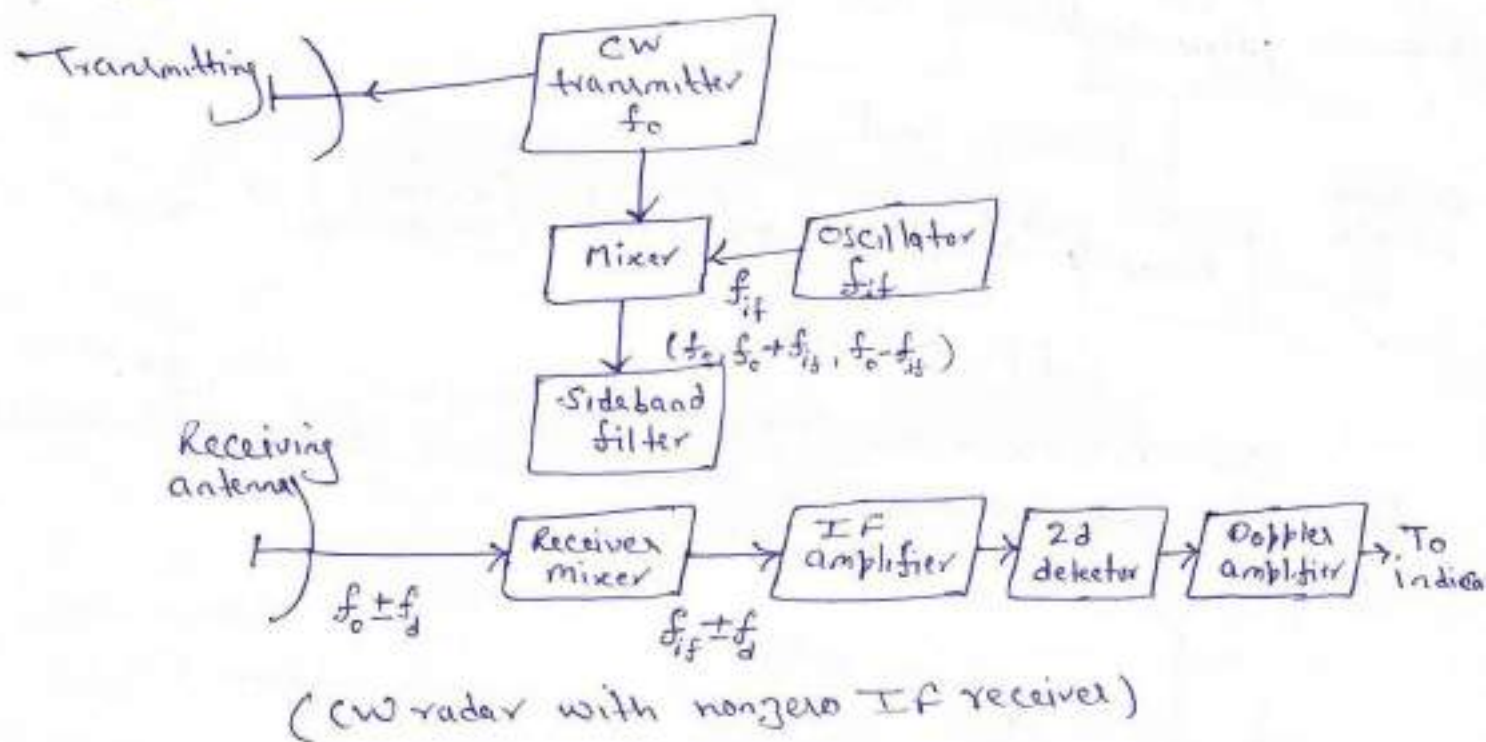 Transmitting
CW
transmitter
f₀
Mixer
Oscillator
f_if
f_if
(f₀, f₀+f_if, f₀-f_if)
Sideband
filter
Receiving
antenna
f₀ ± f_d
Receiver
mixer
f_if ± f_d
IF
amplifier
2d
detector
Doppler
amplifier
To
indica
(CW radar with nonzero IF receiver)